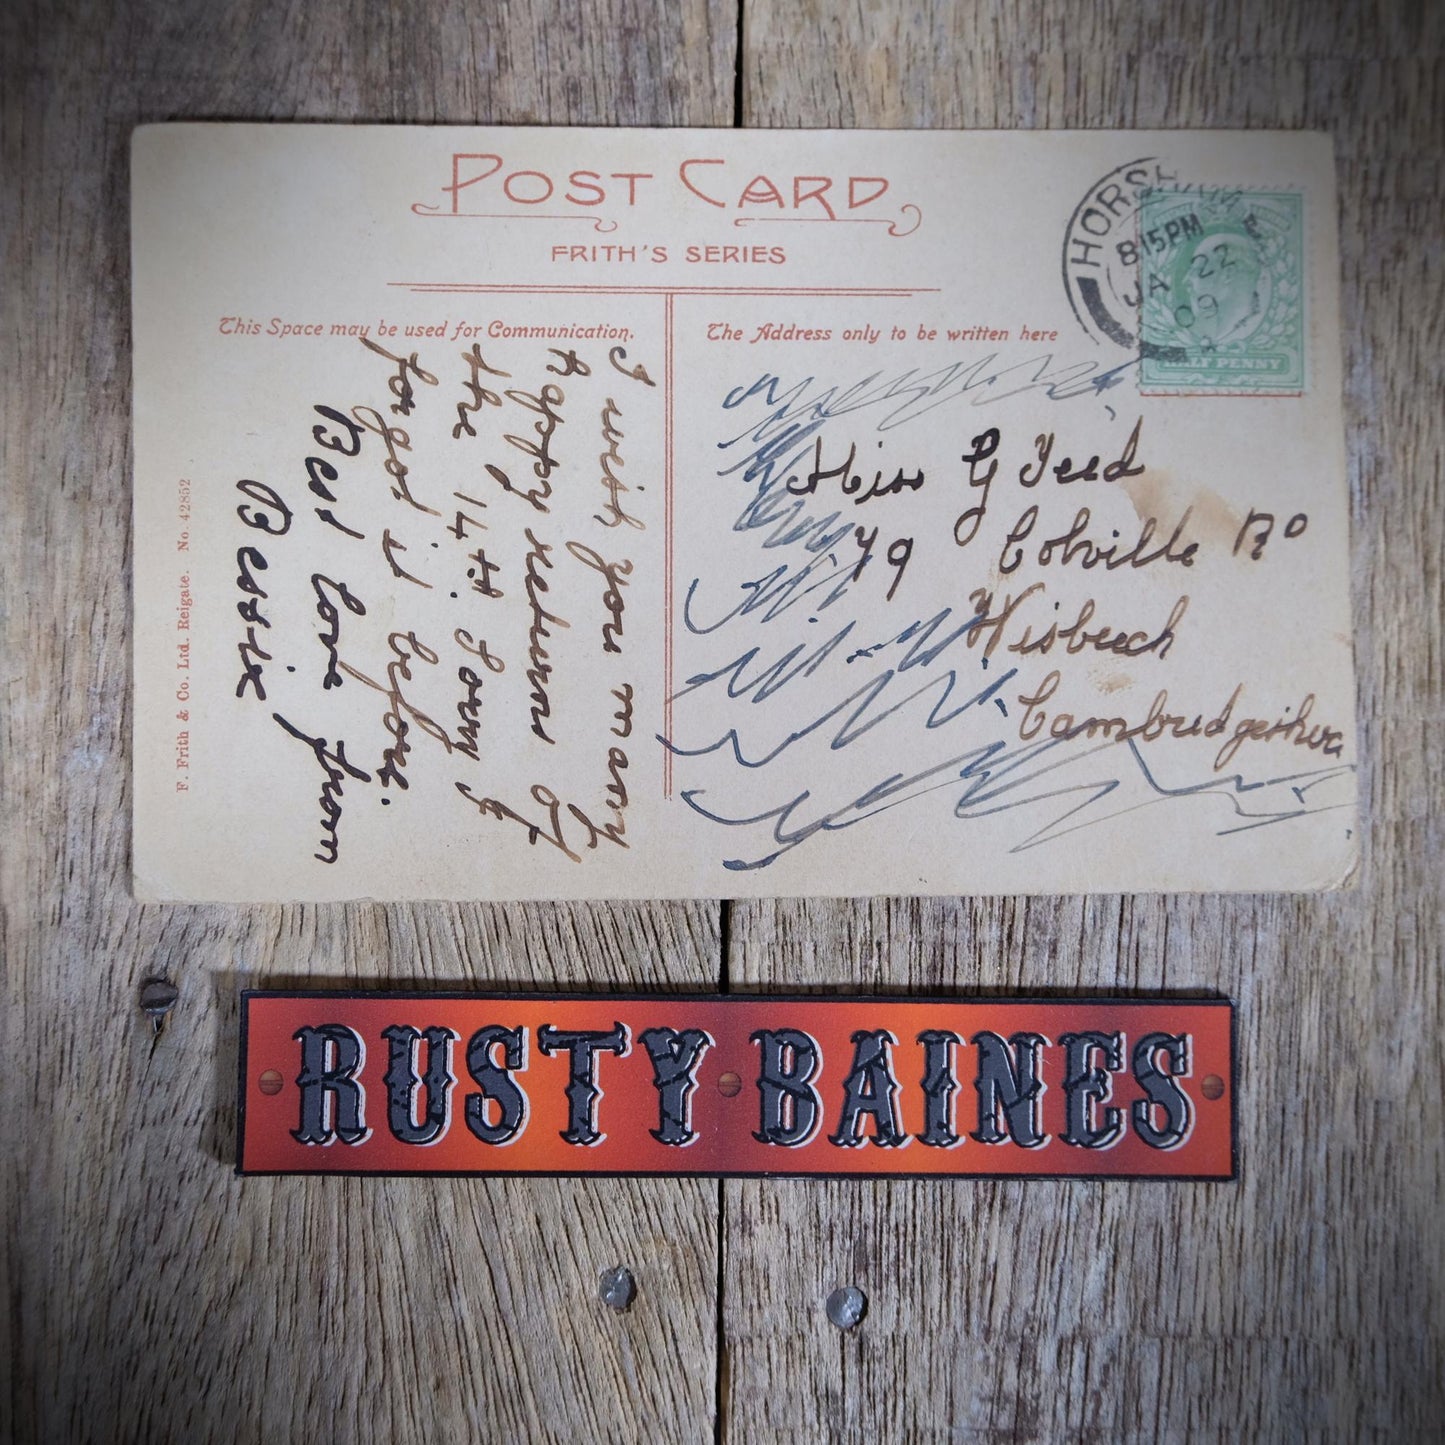 POST CARD
FRITH'S SERIES
This Space may be used for Communication.
The Address only to be written here
HORSHAM
8 15 PM
JA 22
09
HALF PENNY
I wish you many
happy returns of
the 14th. Sorry I
forgot it before.
Best love from
Bessie
Miss G
79 Colville Rd
Wisbech
Cambridgeshire
F. Frith & Co. Ltd. Reigate. No. 42852
RUSTY BAINES